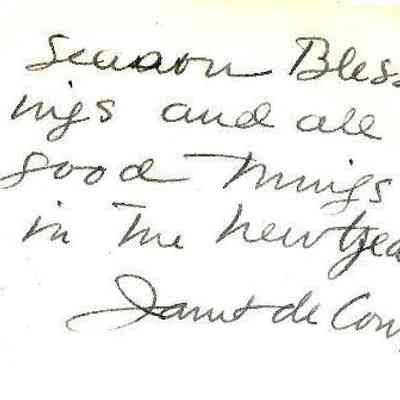 Season Bless
ings and all
good Things
in The new yea
Janet de Con